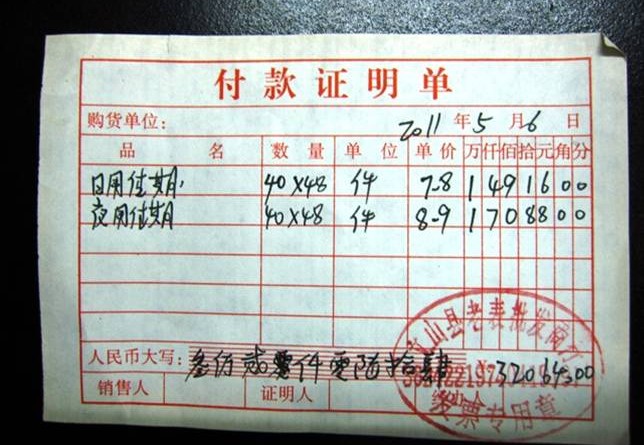 付款证明单
购货单位： 2011年5月6日
品名 数量 单位 单价 万仟佰拾元角分
日用佳期 40×48 件 7-8 1497600
夜用佳期 40×48 件 8-9 1708800
人民币大写： 贰 仟零陆拾肆 32064.00
销售人 证明人
山县老表批发商行
发票专用章